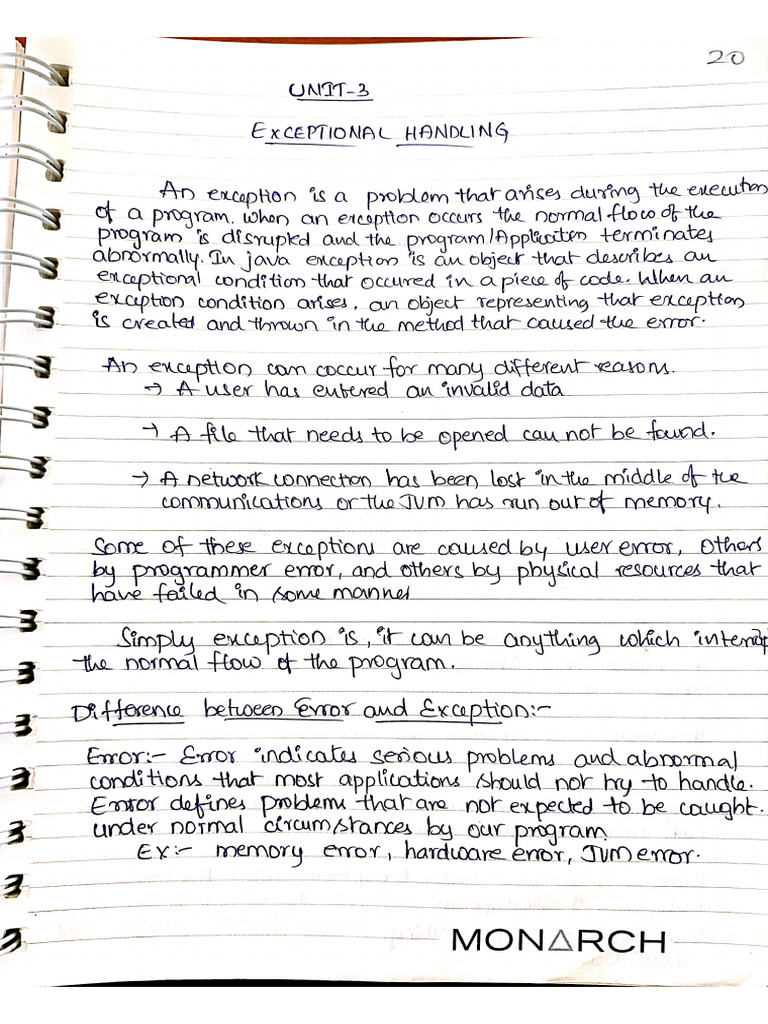 20
UNIT-3
EXCEPTIONAL HANDLING
An exception is a problem that arises during the execution
of a program. When an exception occurs the normal flow of the
program is disrupted and the program/Application terminates
abnormally. In java exception is an object that describes an
exceptional condition that occured in a piece of code. When an
exception condition arises, an object representing that exception
is created and thrown in the method that caused the error.
An exception can coccur for many different reasons.
→ A user has entered an invalid data
→ A file that needs to be opened can not be found.
→ A network connection has been lost in the middle of the
communications or the JVM has run out of memory.
Some of these exceptions are caused by user error, others
by programmer error, and others by physical resources that
have failed in some manner
Simply exception is, it can be anything which interrup
the normal flow of the program.
Difference between Error and Exception:-
Error:- Error indicates serious problems and abnormal
conditions that most applications should not try to handle.
Error defines problems that are not expected to be caught
under normal circumstances by our program.
Ex:- memory error, hardware error, JVM error.
MONARCH